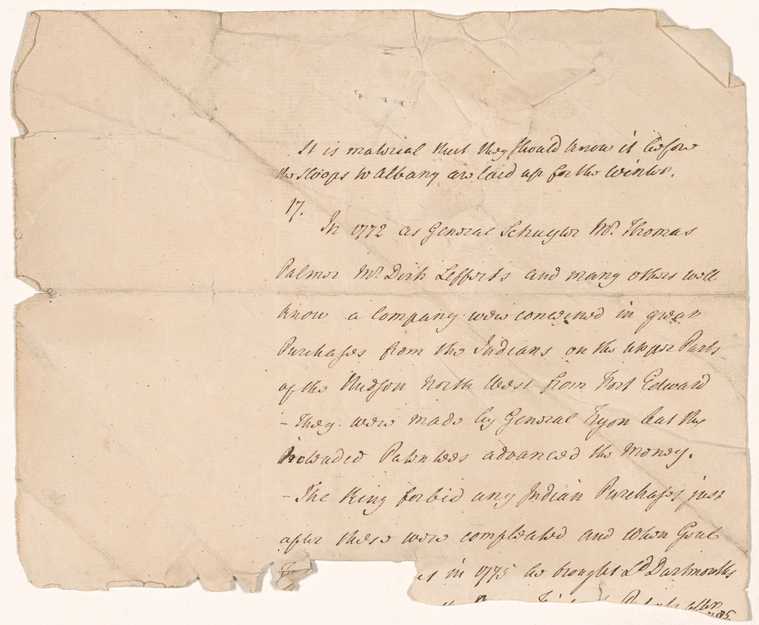 It is material that they should know it before
the Sloops to Albany are laid up for the Winter.
17.
In 1772 as General Schuyler Mr. Thomas
Palmer Mr. Dirk Lefferts and many others well
know a Company were concerned in great
Purchases from the Indians on the upper Parts
of the Hudson North West from Fort Edward
- They were made by General Tryon but the
Patentees advanced the Money.
- The King forbid any Indian Purchases just
after these were compleated and when Genl
in 1775 he brought Ld Dartmouths